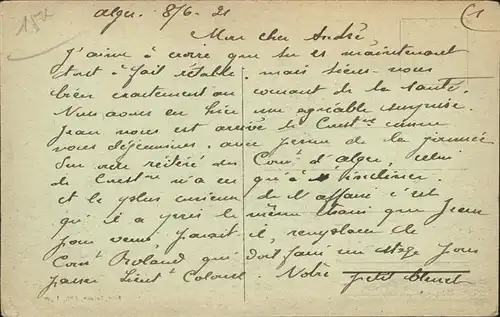 Alger. 8/6. 21
Mon cher André,
J'aime à croire que tu es maintenant
tout à fait rétabli, mais tiens-nous
bien exactement au courant de ta santé.
Nous avons eu hier une agréable surprise.
Jean nous est arrivé de Const.ne comme
nous déjeunions. avec perme de la journée
Sur ordre réitéré du Com.t d'Alger, celui
de Const.ne n'a eu qu'à s'incliner.
et le plus curieux de l'affaire c'est
qu'il a pris le même train que Jean
pour venir, paraît-il, remplacer le
Com.t Roland qui doit faire un stage pour
passer Lieut.t Colonel. Notre
petit